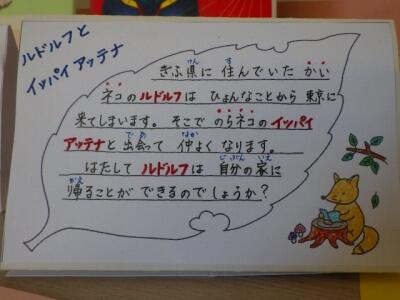 ルドルフと
イッパイアッテナ
ぎふ県に 住んでいた かい
ネコの ルドルフは ひょんなことから 東京に
来てしまいます。 そこで のらネコの イッパイ
アッテナと 出会って 仲よくなります。
はたして ルドルフは 自分の家に
帰ることが できるのでしょうか?